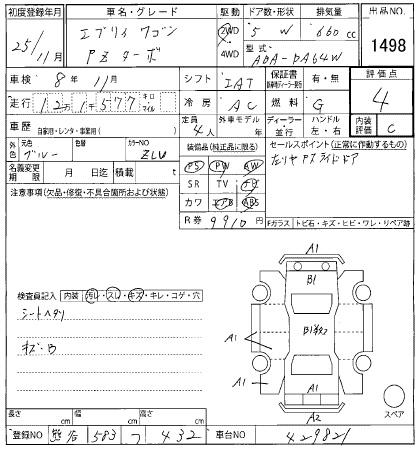 初度登録年月 車名・グレード 駆動 ドア数・形状 排気量 出品NO.
25年11月 エブリィ ワゴン 2WD 5 W 660cc
PZターボ 4WD 型式 ABA-DA64W 1498
車検 8年11月 シフト IAT 保証書 有・無 評価点
走行 12万1千577キロ マイル 冷房 AC 燃料 G 4
車歴 自家用・レンタ・事業用( ) 定員 4人 外車モデル 年 ディーラー 並行 ハンドル 左・右 内装評価 C
外色 元色 ブルー 色替 カラーNO ZLU 装備品(純正品に限る) セールスポイント(正常に作動するもの)
名義変更期限 月 日迄 積載 t PS PW AW 左リヤPスライドドア
注意事項(欠品・修復・不具合箇所および状態) SR TV
カワ エアB ABS
R券 9910円 Fガラス トビ石・キズ・ヒビ・ワレ・リペア跡
A1
B1
検査員記入 内装 汚レ・スレ・キズ・キレ・コゲ・穴
シートヘタリ
A1
キズ・B
A1
A1
A2
スペア
長さ cm 幅 cm 高さ cm
登録NO 583 432 車台NO 429821